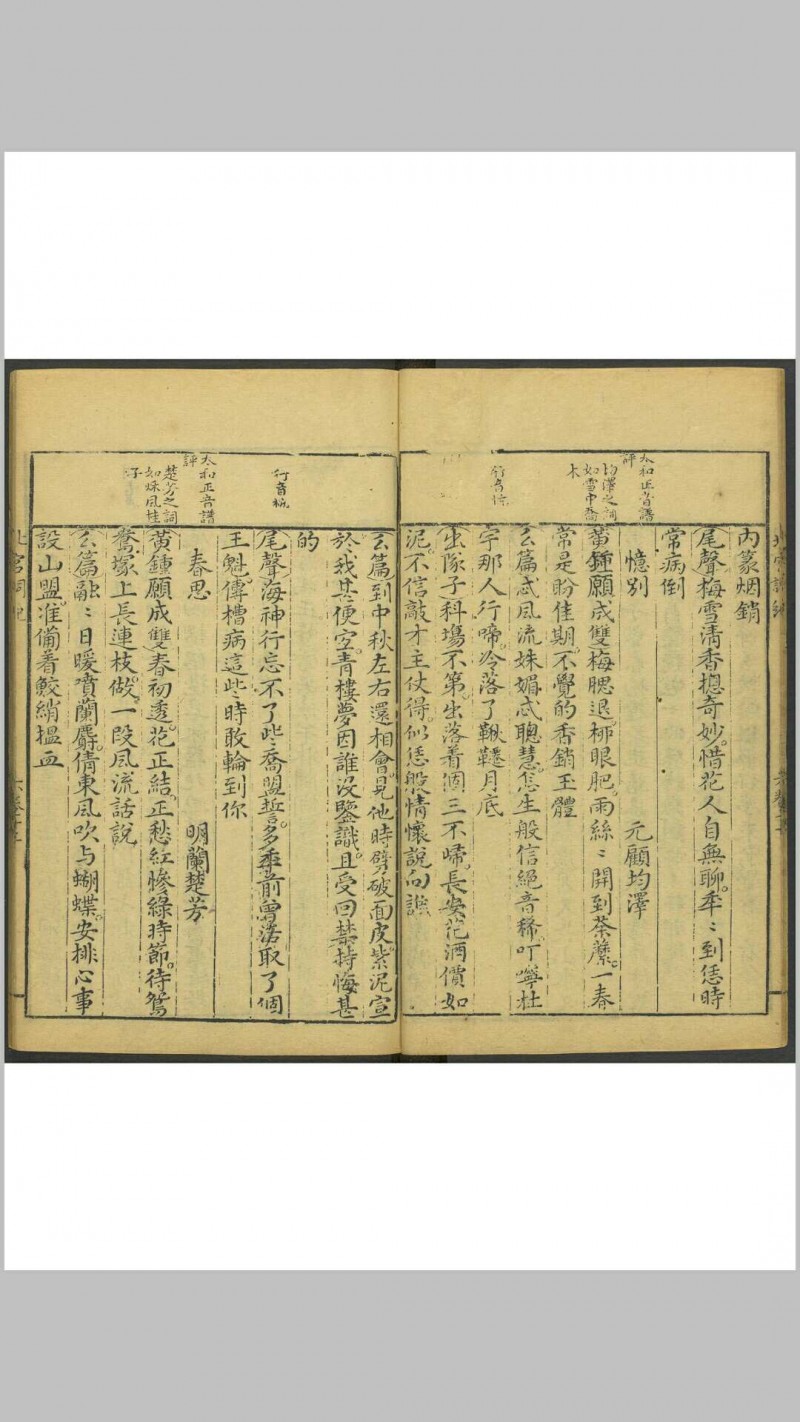 太和正音譜
評
均澤之詞
如雪中喬
木
行音杭
內篆烟銷
尾聲梅雪清香摠奇妙。惜花人自無聊。年〻到恁時
常病倒
憶別 元顧均澤
黃鍾願成雙梅腮退。柳眼肥。雨絲〻開到荼蘼。一春
常是盼佳期。不覺的香銷玉體
幺篇忒風流姝媚忒聰慧。怎生般信絕音稀。叮嚀杜
宇那人行啼。冷落了鞦韆月底
出隊子科場不第。出落着個三不歸。長安花酒價如
泥。不信敲才主仗得。似恁般情懷說向誰
行音杭
太和正音譜
評
楚芳之詞
如秋風桂
子
幺篇到中秋左右還相會。見他時劈破面皮。紫泥宣
於我甚便宜。青樓夢因誰沒鑒識。且受回禁持悔甚
的
尾聲海神行忘不了些喬盟誓。多年前曾活取了個
王魁。傳槽病這些時敢輪到你
春思 明蘭楚芳
黃鍾願成雙春初透。花正結。正愁紅慘綠時節。待鴛
鴦塚上長連枝。做一段風流話說
幺篇融〻日暖噴蘭麝。倩東風吹与蝴蝶。安排心事
設山盟。准備着鮫綃搵血